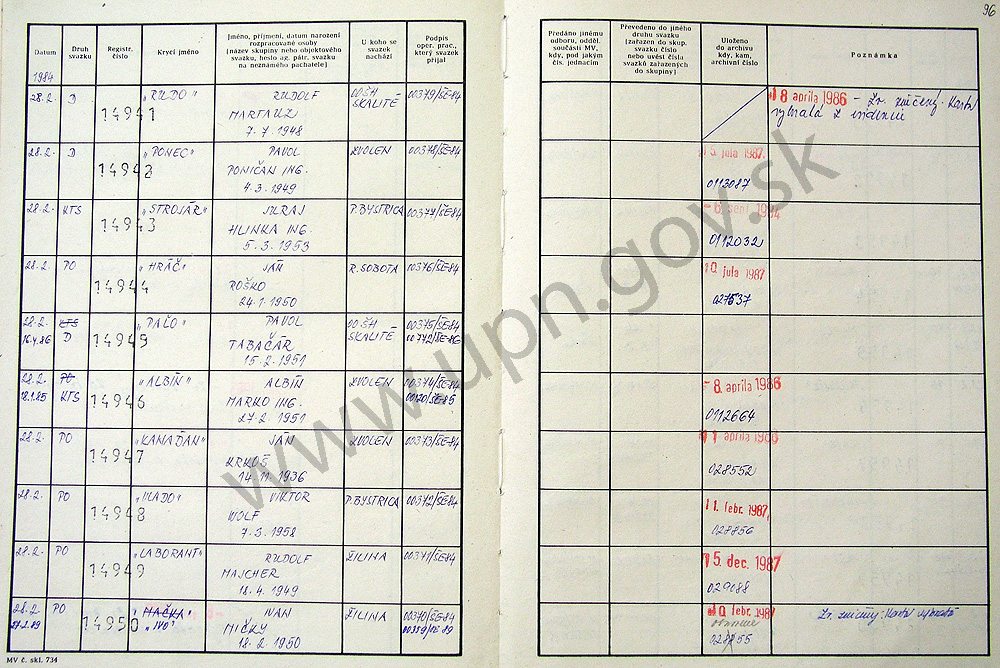 96
Datum
Druh svazku
Registr. číslo
Krycí jméno
Jméno, příjmení, datum narození
rozpracované osoby
(název skupiny nebo objektového
svazku, heslo ag. pátr. svazku
na neznámého pachatele)
U koho se
svazek
nachází
Podpis
oper. prac.,
který svazek
přijal
Předáno jinému
odboru, odděl.
součásti MV,
kdy, pod jakým
čís. jednacím
Převedeno do jiného
druhu svazku
(zařazen do skup.
svazku číslo
nebo uvést čísla
svazků zařazených
do skupiny)
Uloženo
do archivu
kdy, kam,
archivní číslo
Poznámka
1984
28.2. D 14941 „RUDO" RUDOLF
MARTAUZ
7.7.1948
OO ŠH
SKALITÉ
00379/ŠE-84
18 apríla 1986 – Zv. zničený. Karty
vybratá z evidencie
28.2. D 14942 „PONEC" PAVOL
PONIČAN ING.
4.3.1949
ZVOLEN
00378/ŠE-84
júla 1987
0113087
28.2. KTS 14943 „STROJÁR" JURAJ
HLINKA ING.
5.3.1953
P. BYSTRICA
00377/ŠE-84
0112032
28.2. PO 14944 „HRÁČ" JÁN
ROŠKO
24.1.1950
R. SOBOTA
00376/ŠE-84
júla 1987
027537
28.2. KTS 14945 „PAĽO" PAVOL
16.4.86 D
TABAČÁR
15.2.1951
OO ŠH
SKALITÉ
00375/ŠE-84
00772/ŠE-86
28.2. PO 14946 „ALBÍN" ALBÍN
18.1.85 KTS
MARKO ING.
27.2.1951
ZVOLEN
00374/ŠE-84
00120/ŠE-85
– 8. apríla 1986
0112664
28.2. PO 14947 „KANAĎAN" JÁN
KRKOŠ
14.11.1936
ZVOLEN
00373/ŠE-84
apríla 1986
028552
28.2. PO 14948 „VLADO" VIKTOR
WOLF
7.3.1958
P. BYSTRICA
00372/ŠE-84
11. febr. 1987
028856
28.2. PO 14949 „LABORANT" RUDOLF
MAJCHER
18.4.1949
ŽILINA
00371/ŠE-84
15. dec. 1987
029688
28.2. PO 14950 „MAČKA" IVAN
„IVO"
MIČKY
18.2.1950
ŽILINA
00370/ŠE-84
10 febr. 1987
028855
Zv. zničený. Karta vybratá
MV č. skl. 734
www.upn.gov.sk